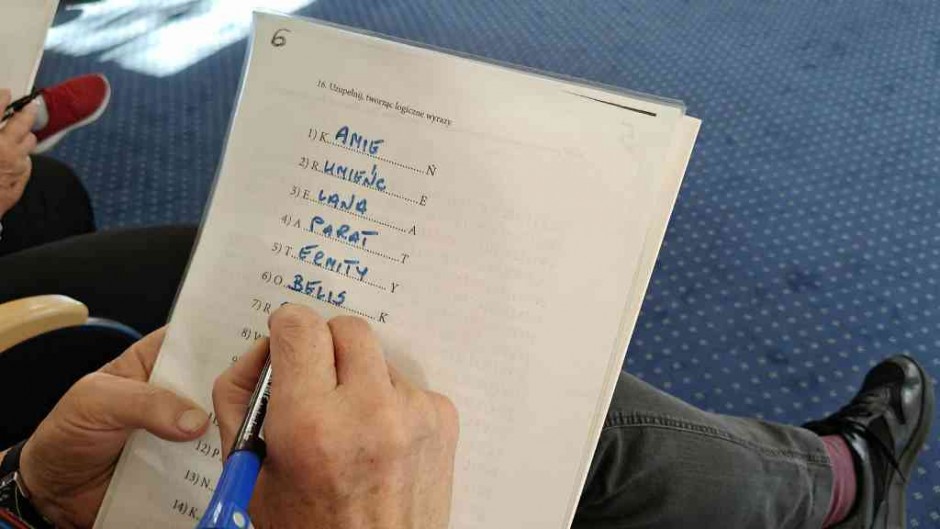 6
16. Uzupełnij, tworząc logiczne wyrazy
1) K AMIE Ń
2) R UMIEŃC E
3) E LANA A
4) A PARAT T
5) T ERMITY Y
6) O BELIS K
7) R
8) W
12) P
13) N
14) K